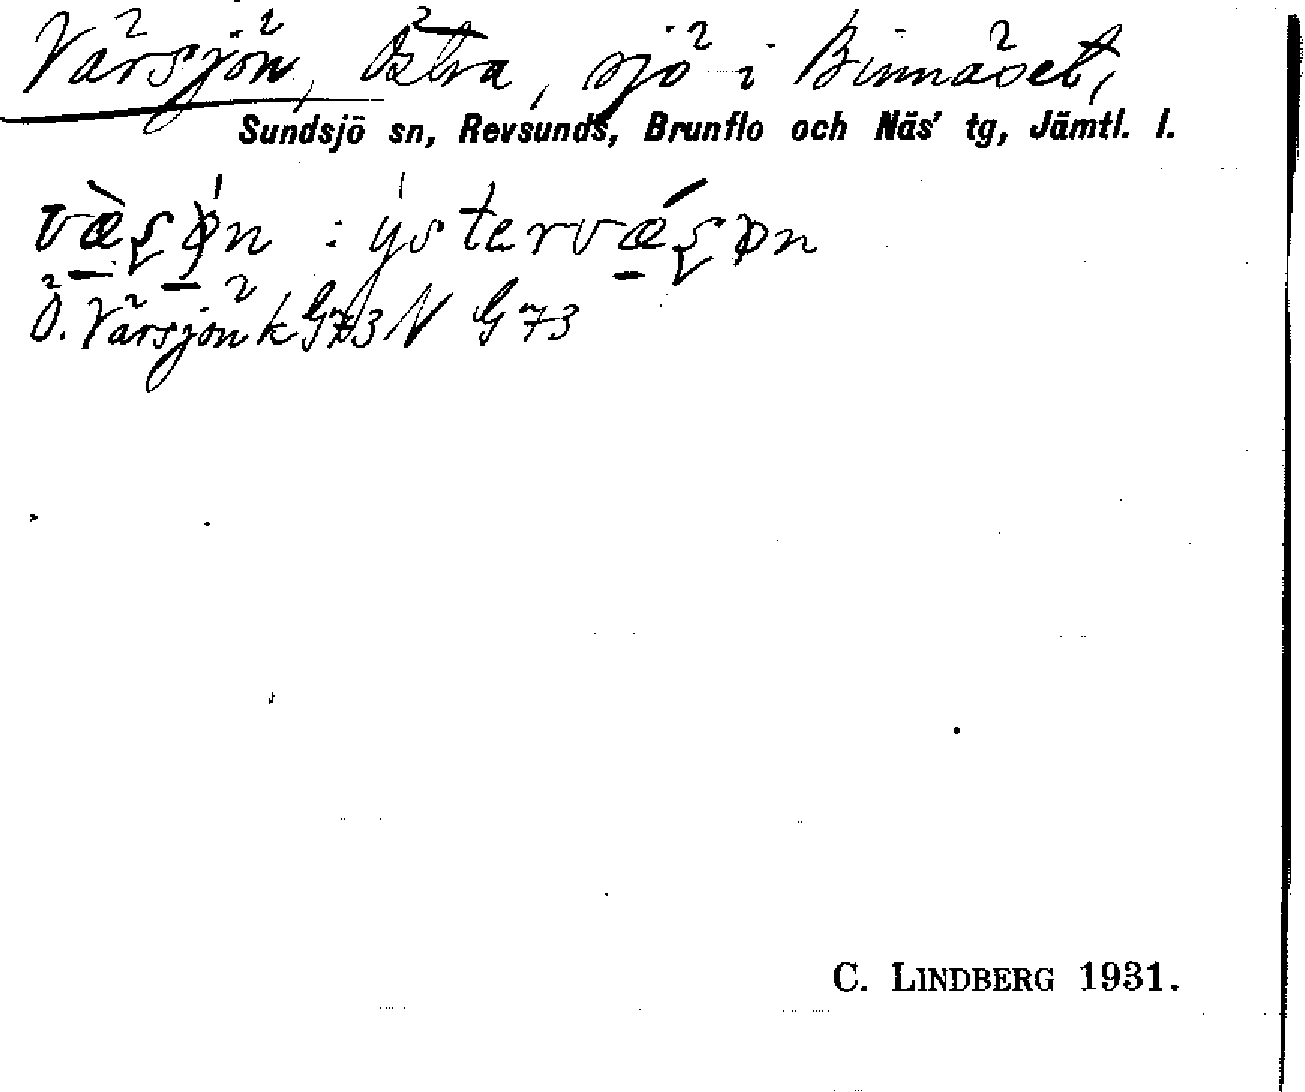 Värsjön, Östra, sjö i Binnäset,
Sundsjö sn, Revsunds, Brunflo och Näs' tg, Jämtl. l.
væ̀ʂøn : ýstervǽʂøn
Ö. Värsjön k G73 N G 73
C. LINDBERG 1931.